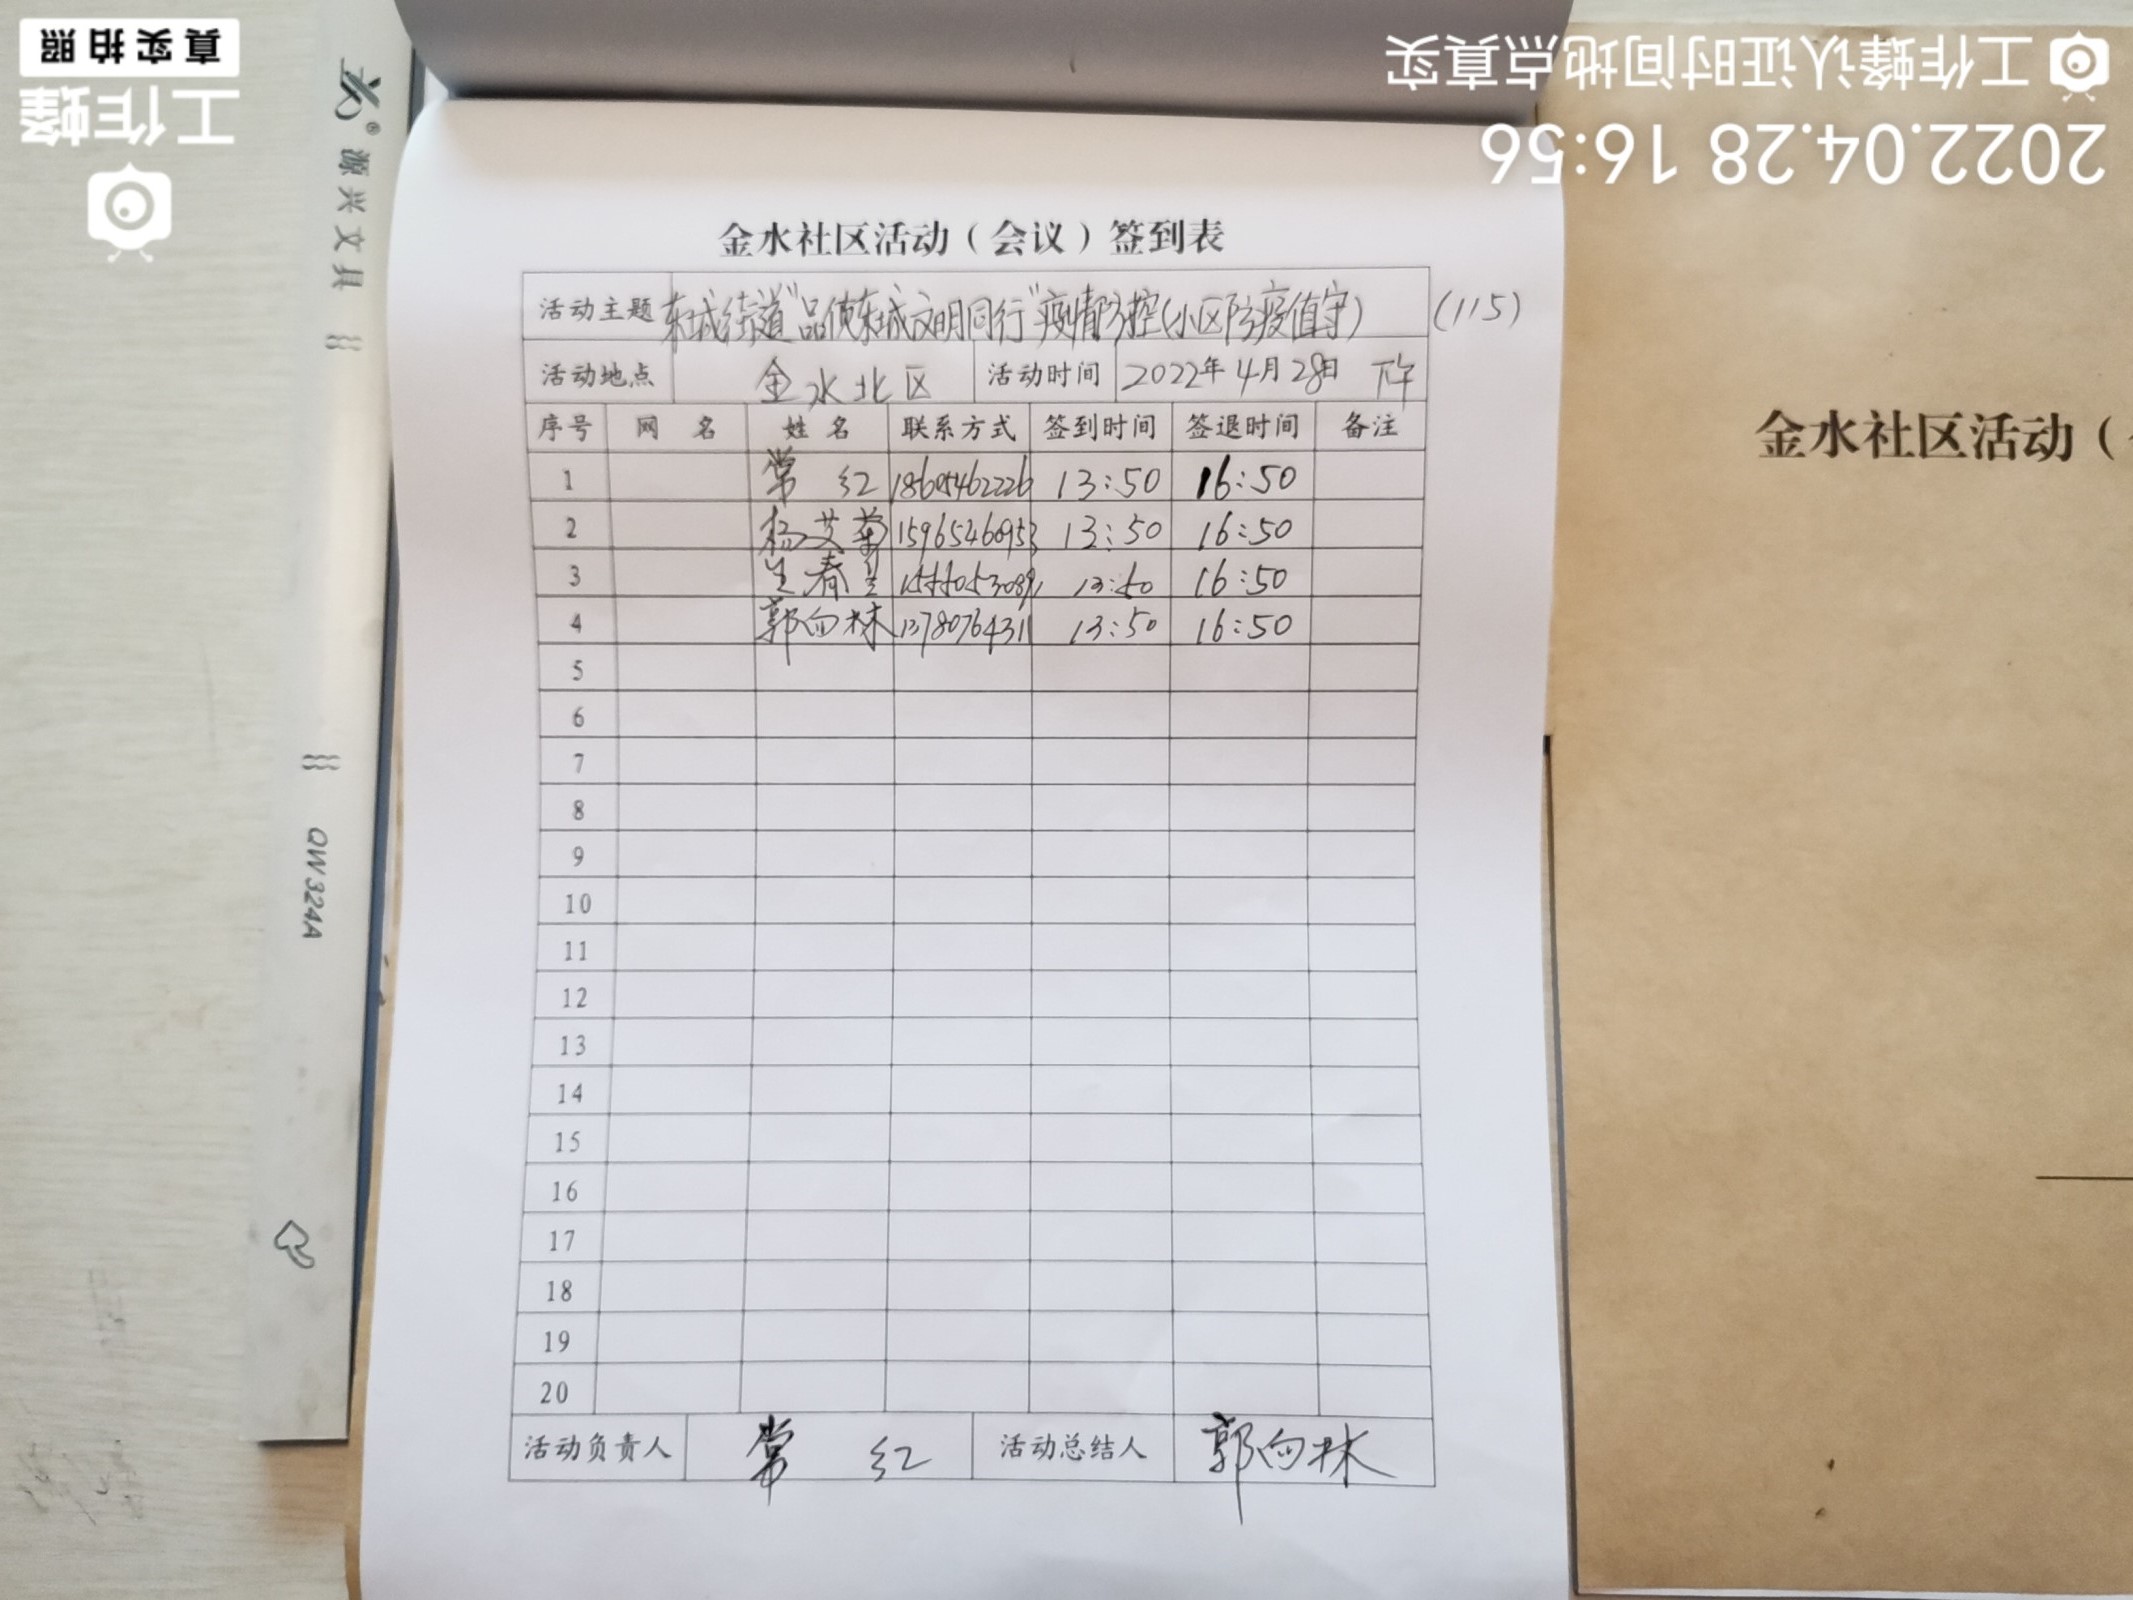 金水社区活动（会议）签到表
活动主题 东城街道"品质东城文明同行"疫情防控(小区防疫值守) (115)
活动地点 金水北区 活动时间 2022年4月28日 下午
序号 网 名 姓 名 联系方式 签到时间 签退时间 备注
1 常 红 18605462226 13:50 16:50
2 杨艾菊 15965460953 13:50 16:50
3 13:50 16:50
4 郭向林 13780764311 13:50 16:50
5
6
7
8
9
10
11
12
13
14
15
16
17
18
19
20
活动负责人 常 红 活动总结人 郭向林
金水社区活动（
源兴文具
QW324A
2022.04.28 16:56
工作蜂认证时间地点真实
工作蜂
真实拍照